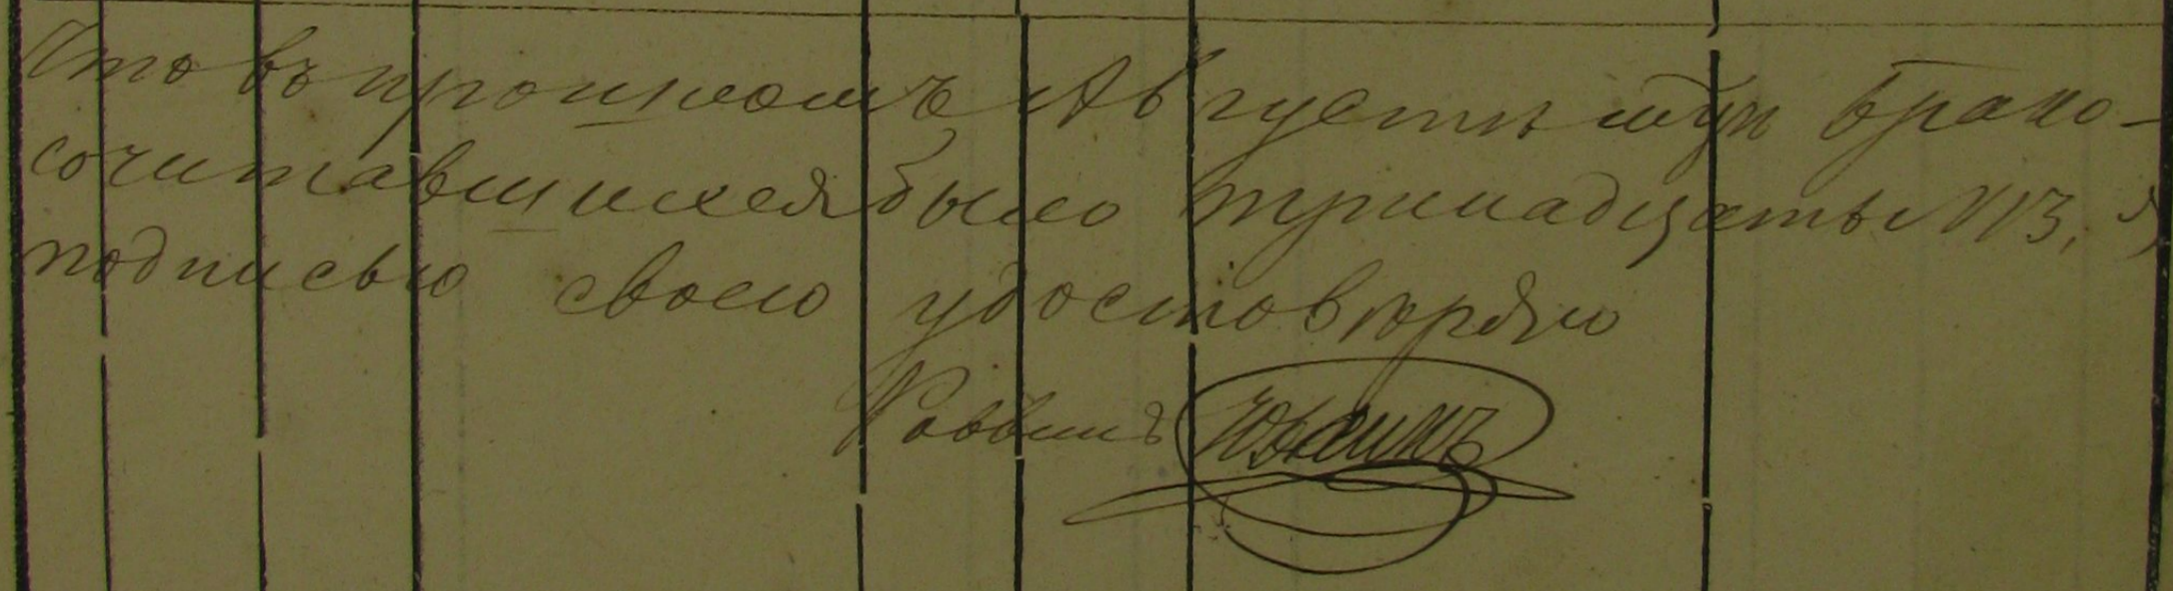 Что въ прошломъ Августѣ мѣс. Брако-
сочитавшихся было тринадцать №13, въ
подписью своею удостовѣряю
Раввинъ